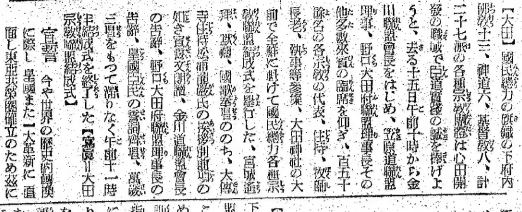 【大田】國民總力の旗幟の下府内
佛敎十三、神道六、基督敎八、計
二十七派の各種宗敎聯盟は心田開
發の職域で臣道實踐の誠を捧げよ
うと、去る十五日午前十時から金
川聯盟會長をはじめ、笠原道聯盟
理事、野口大田府聯盟理事長その
他多數來賓の臨席を仰ぎ、百五十
餘名の各宗敎の代表、住持、牧師
長老、執事等參集、大田神社の大
前で全鮮に魁けて國民總力各種宗
敎聯盟結成式を擧行した、宮城遙
拜、默禱、國歌奉唱ののち、大傳
寺住持 氏の挨拶、開領の
如き宣誓文朗讀、金川道聯盟會長
の告辭、野口大田府聯盟理事長の
告辭、皇國臣民の誓詞齊唱、萬歲
三唱をもつて滯りなく午前十一時
半結成式を終了した【寫眞=大田
宗敎聯盟結成式】
宣誓 今や世界の歷史的轉換
に際し 皇國また一大革新に直
面し東亞共榮圈確立のため玆に